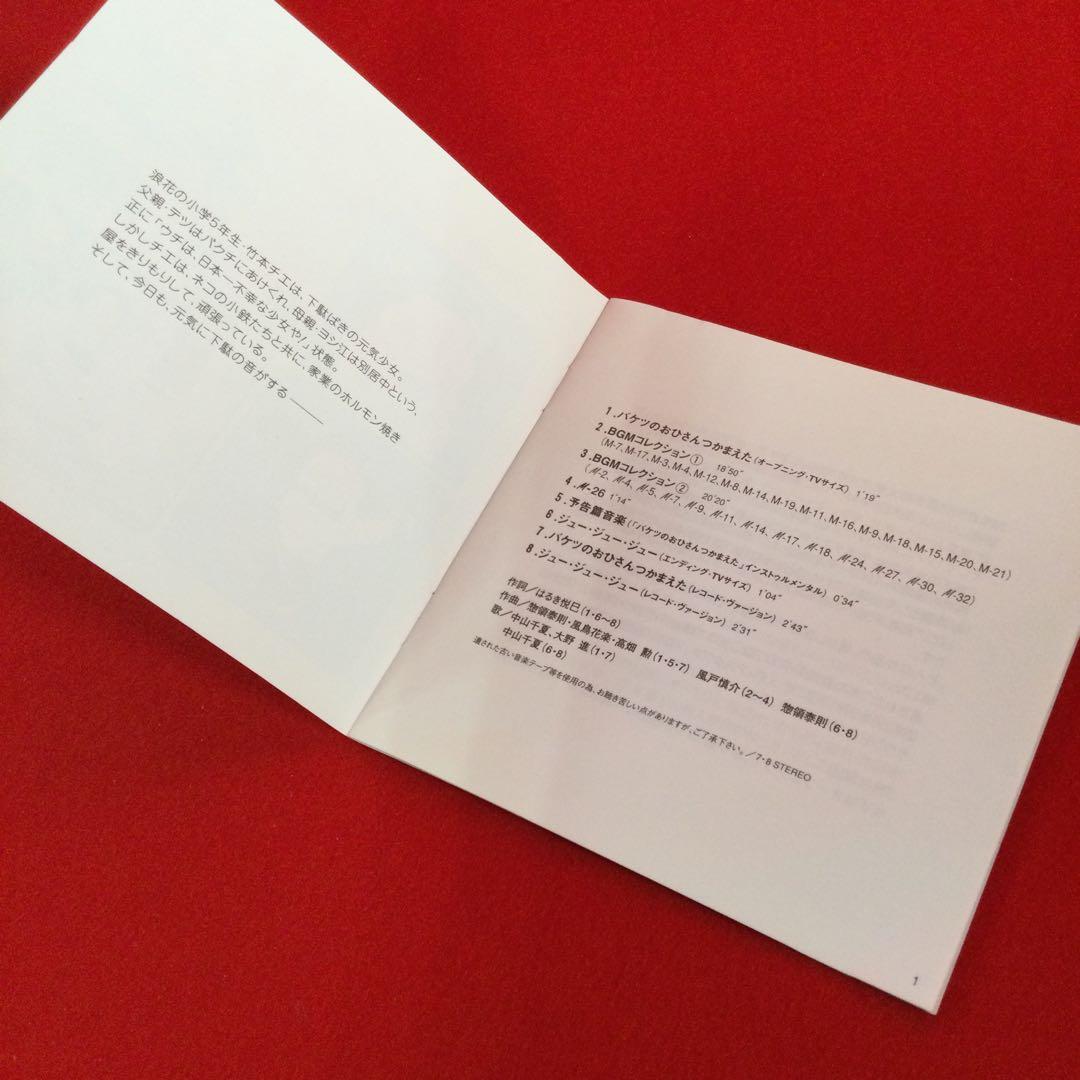 浪花の小学5年生・竹本チエは、下駄ばきの元気少女。
父親・テツはバクチにあけくれ、母親・ヨシ江は別居中という、
正に「ウチは、日本一不幸な少女や!」状態。
しかしチエは、ネコの小鉄たちと共に、家業のホルモン焼き
屋をきりもりして、頑張っている。
そして、今日も、元気に下駄の音がする———
1.バケツのおひさんつかまえた(オープニング・TVサイズ) 1'19"
2.BGMコレクション① 18'50"
(M-7、M-17、M-3、M-4、M-12、M-8、M-14、M-19、M-11、M-16、M-9、M-18、M-15、M-20、M-21)
3.BGMコレクション② 20'20"
(M-2、M-4、M-5、M-7、M-9、M-11、M-14、M-17、M-18、M-24、M-27、M-30、M-32)
4.M-26 1'14"
5.予告篇音楽(「バケツのおひさんつかまえた」インストゥルメンタル) 0'34"
6.ジュー・ジュー・ジュー(エンディング・TVサイズ) 1'04"
7.バケツのおひさんつかまえた(レコード・ヴァージョン) 2'43"
8.ジュー・ジュー・ジュー(レコード・ヴァージョン) 2'31"
作詞/はるき悦巳(1・6~8)
作曲/惣領泰則・風鳥花楽・高畑 勲(1・5・7) 風戸慎介(2~4) 惣領泰則(6・8)
歌/中山千夏、大野 進(1・7)
中山千夏(6・8)
遺された古い音楽テープ等を使用の為、お聴き苦しい点がありますが、ご了承下さい。/7・8 STEREO
1